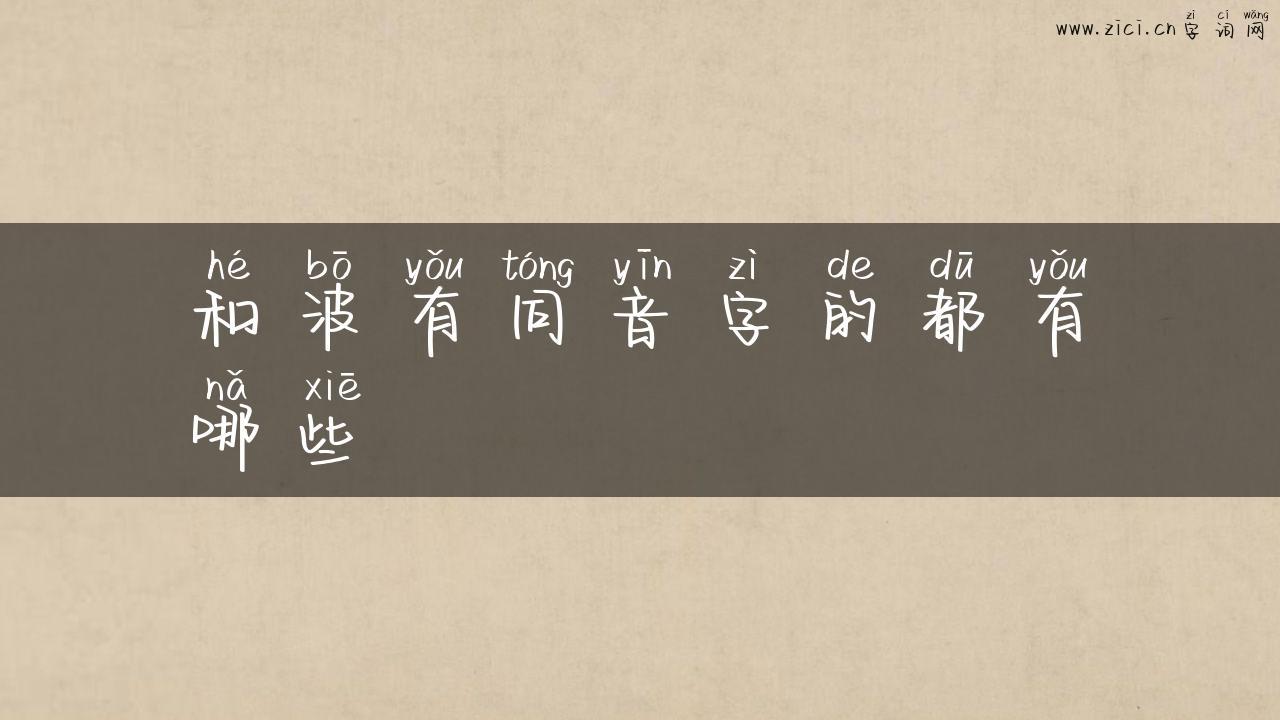 zì cí wǎng
www.zici.cn 字词网
hé bō yǒu tóng yīn zì de dū yǒu
和波有同音字的都有
nǎ xiē
哪些